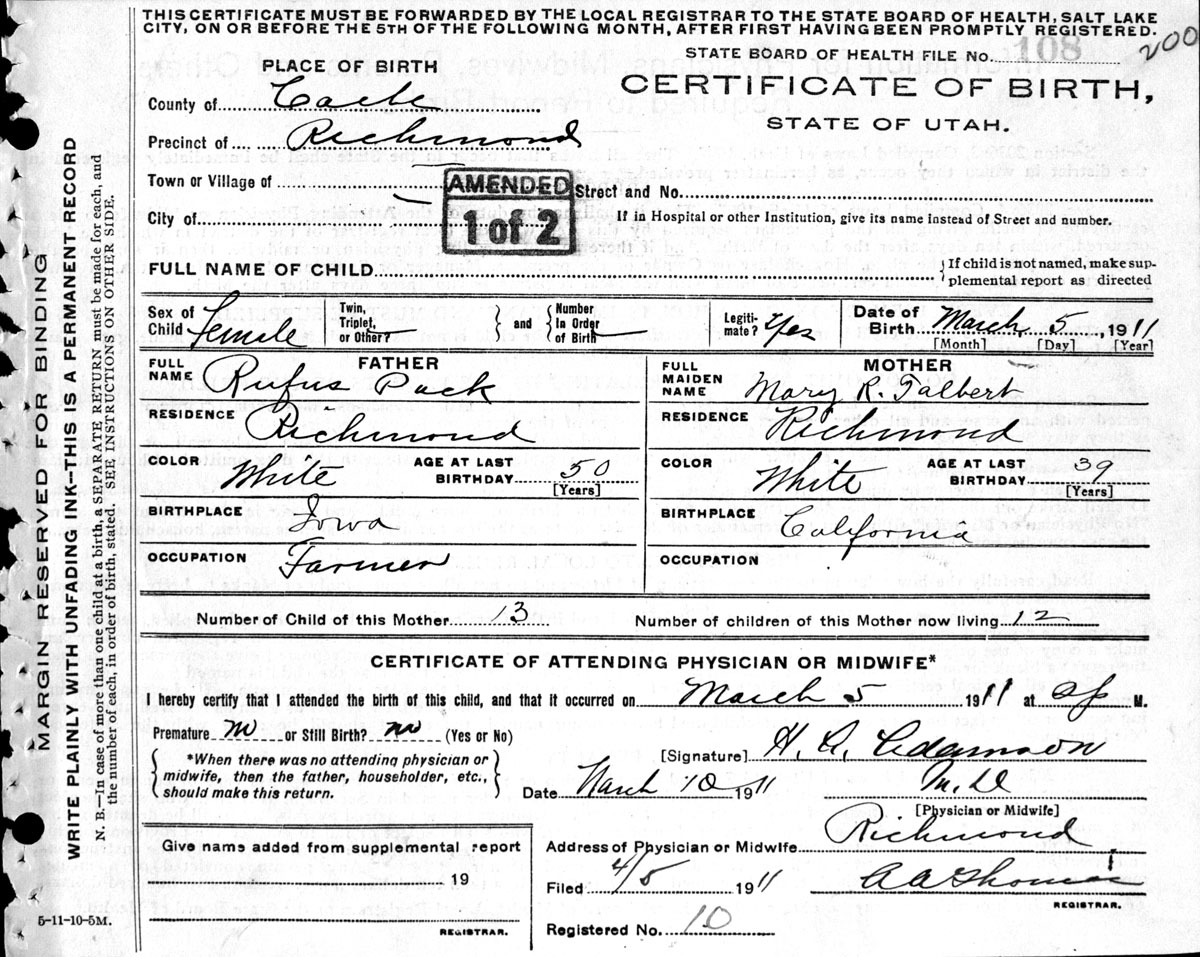 THIS CERTIFICATE MUST BE FORWARDED BY THE LOCAL REGISTRAR TO THE STATE BOARD OF HEALTH, SALT LAKE
CITY, ON OR BEFORE THE 5TH OF THE FOLLOWING MONTH, AFTER FIRST HAVING BEEN PROMPTLY REGISTERED.
STATE BOARD OF HEALTH FILE NO. 108 200
PLACE OF BIRTH
CERTIFICATE OF BIRTH,
STATE OF UTAH.
County of Cache
Precinct of Richmond
Town or Village of
AMENDED
1 of 2
Street and No.
City of
If in Hospital or other Institution, give its name instead of Street and number.
FULL NAME OF CHILD
{If child is not named, make sup-
plemental report as directed
Sex of Child Female
Twin, Triplet, or Other? } and { Number In Order of Birth
Legiti-mate? Yes
Date of Birth March 5, 1911
[Month] [Day] [Year]
FATHER
FULL NAME Rufus Pack
MOTHER
FULL MAIDEN NAME Mary R. Talbert
RESIDENCE Richmond
RESIDENCE Richmond
COLOR White AGE AT LAST BIRTHDAY 50 [Years]
COLOR White AGE AT LAST BIRTHDAY 39 [Years]
BIRTHPLACE Iowa
BIRTHPLACE California
OCCUPATION Farmer
OCCUPATION
Number of Child of this Mother 13 Number of children of this Mother now living 12
CERTIFICATE OF ATTENDING PHYSICIAN OR MIDWIFE*
I hereby certify that I attended the birth of this child, and that it occurred on March 5 1911 at M.
Premature no or Still Birth? no (Yes or No)
{ *When there was no attending physician or
midwife, then the father, householder, etc.,
should make this return. }
[Signature] H. A. Adamson
Date March 10 1911 M.D
[Physician or Midwife]
Address of Physician or Midwife Richmond
Filed 4/5 1911 A A Thomas
REGISTRAR.
Registered No. 10
Give name added from supplemental report
19
REGISTRAR.
5-11-10-5M.
MARGIN RESERVED FOR BINDING
WRITE PLAINLY WITH UNFADING INK—THIS IS A PERMANENT RECORD
N. B.—In case of more than one child at a birth, a SEPARATE RETURN must be made for each, and
the number of each, in order of birth, stated. SEE INSTRUCTIONS ON OTHER SIDE.